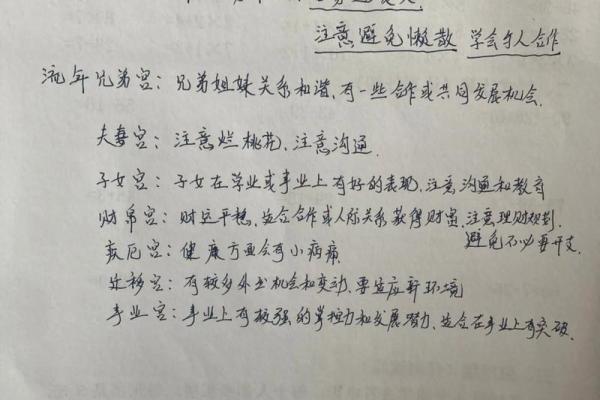 注意避免懒散 学会与人合作
流年兄弟宫：兄弟姐妹关系和谐，有一些合作或共同发展机会.
夫妻宫：注意烂桃花，注意沟通.
子女宫：子女在学业或事业上有好的表现，注意沟通和教育
财帛宫：财运平稳，适合合作或人际关系获得财富，注意理财规划.
避免不必要开支.
疾厄宫：健康方面会有小病痛.
迁移宫：有较多外出机会和变动，要适应新环境
事业宫：事业上有较强的掌控力和发展潜力，适合在事业上有突破.